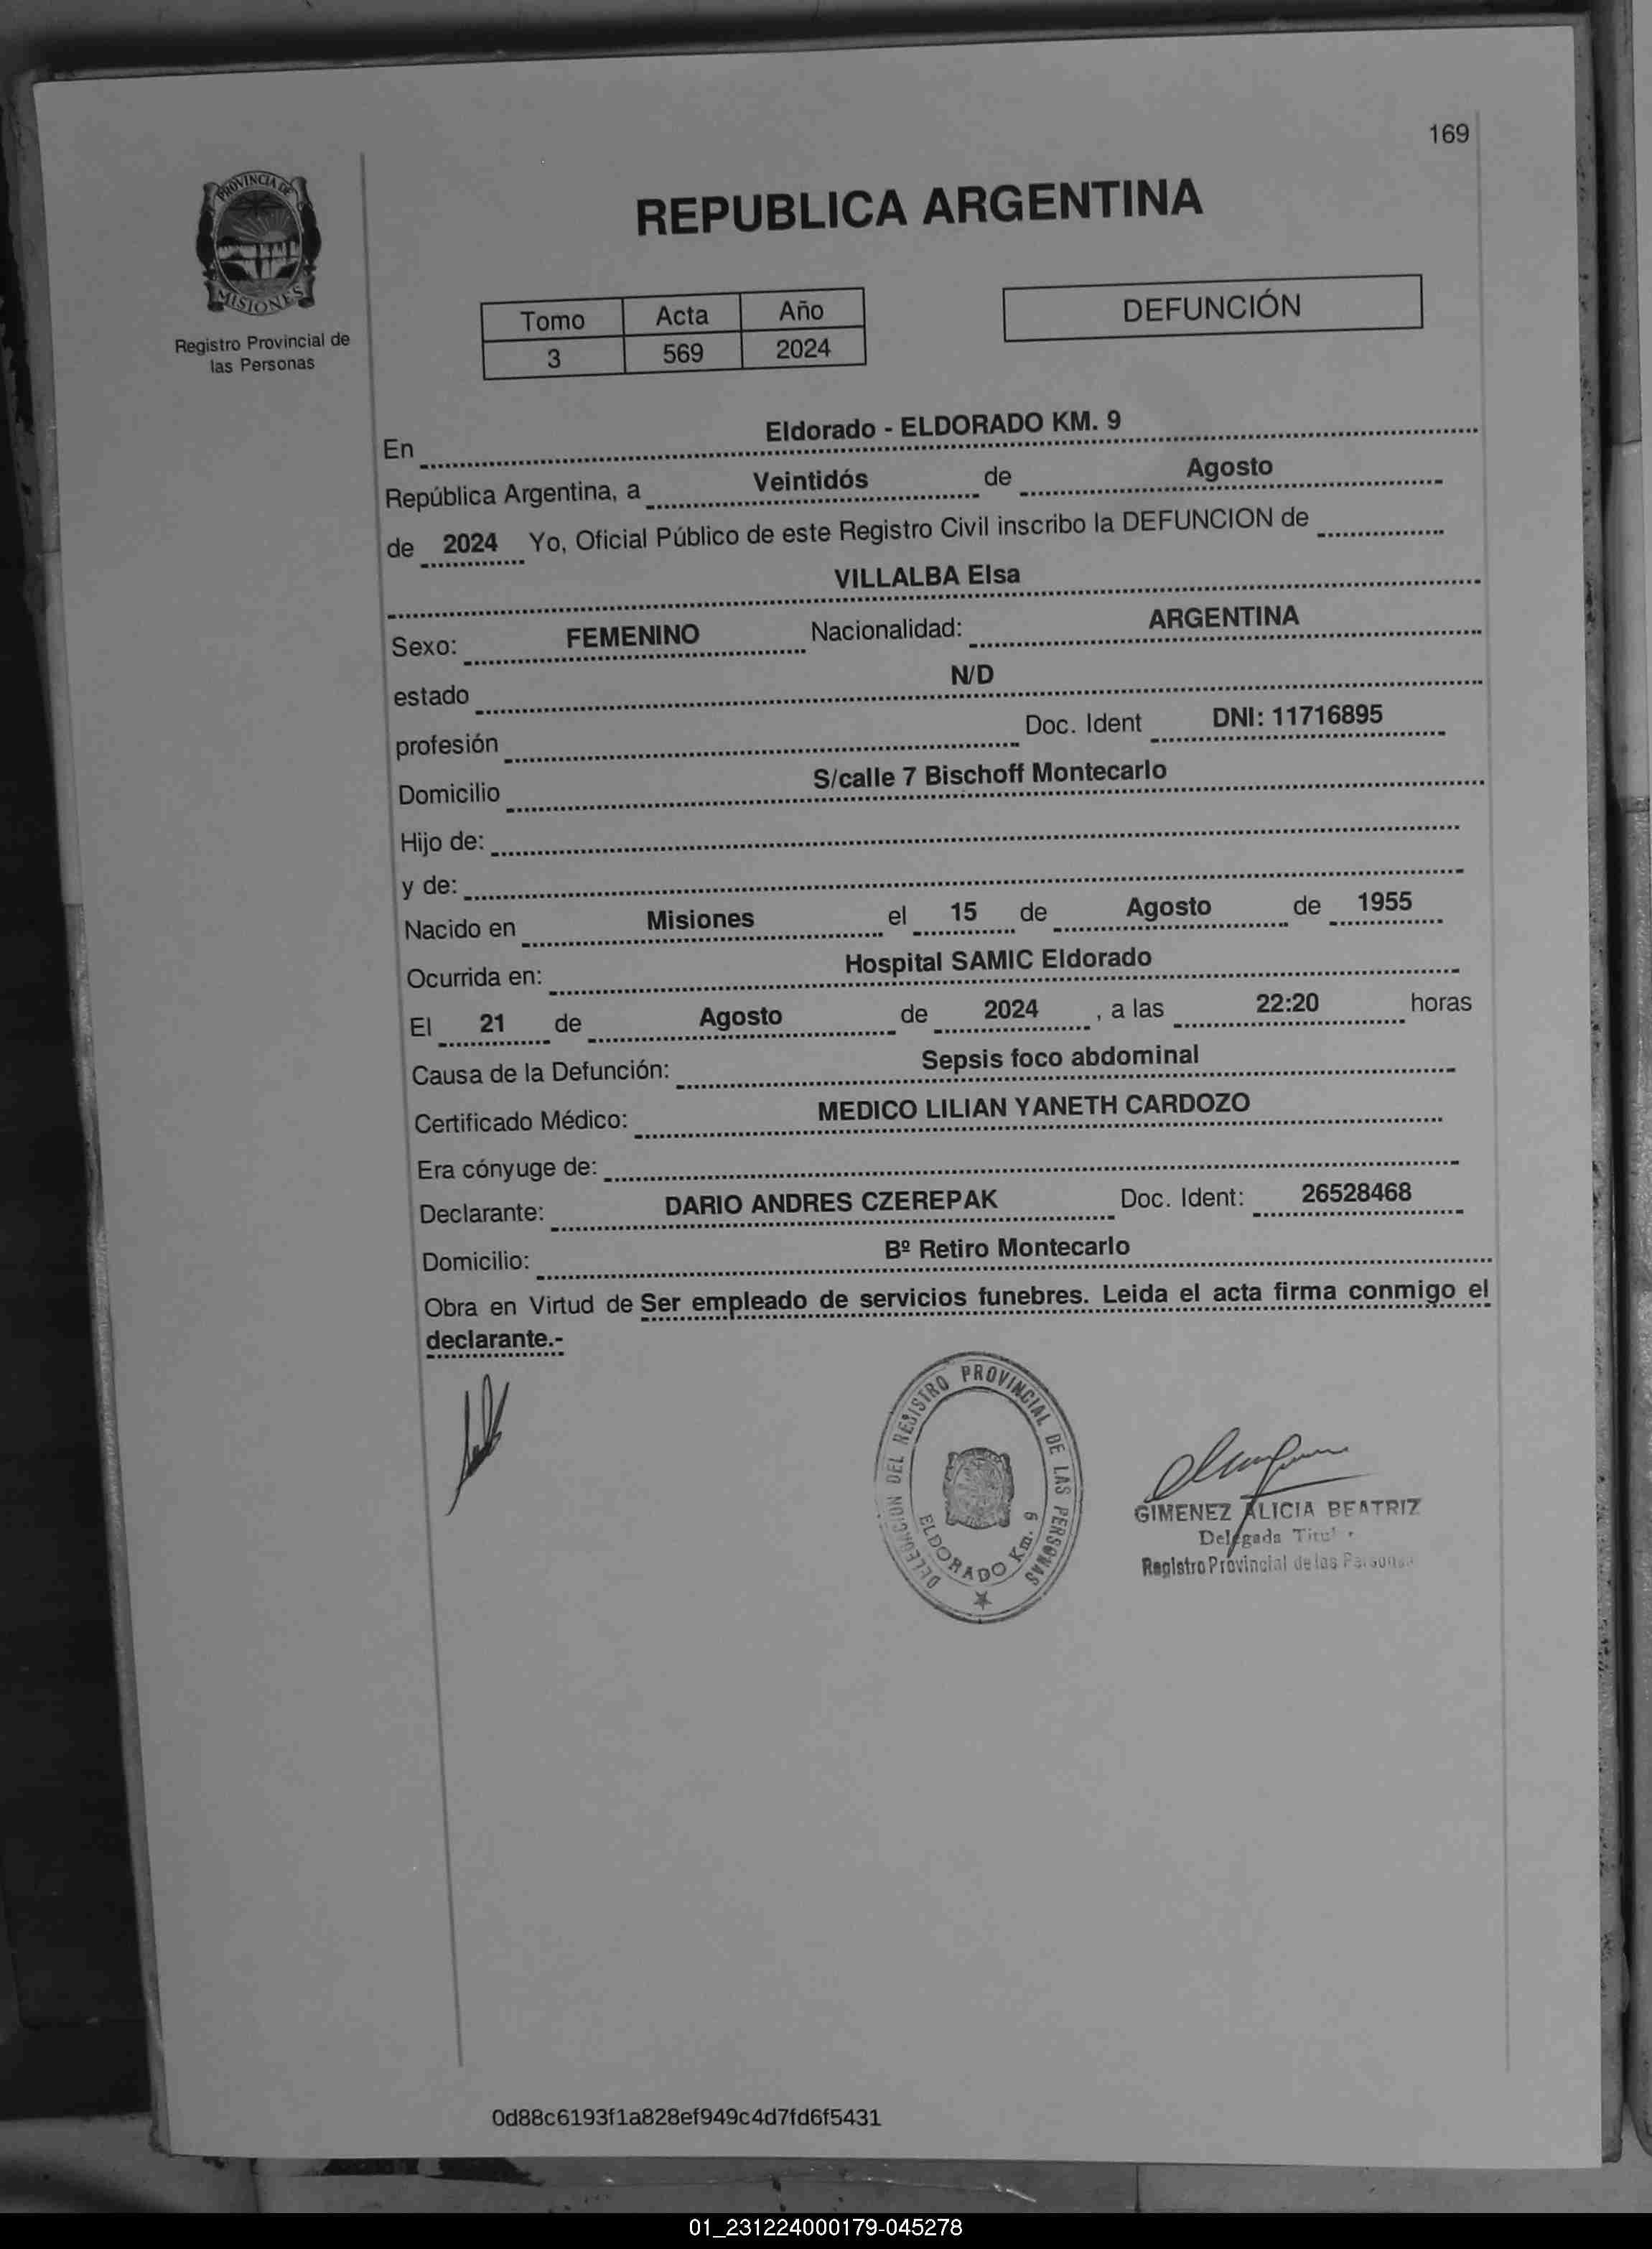 169
PROVINCIA DE
MISIONES
Registro Provincial de
las Personas
REPUBLICA ARGENTINA
Tomo Acta Año
3 569 2024
DEFUNCIÓN
En Eldorado - ELDORADO KM. 9
República Argentina, a Veintidós de Agosto
de 2024 Yo, Oficial Público de este Registro Civil inscribo la DEFUNCION de
VILLALBA Elsa
Sexo: FEMENINO Nacionalidad: ARGENTINA
estado N/D
profesión Doc. Ident DNI: 11716895
Domicilio S/calle 7 Bischoff Montecarlo
Hijo de:
y de:
Nacido en Misiones el 15 de Agosto de 1955
Ocurrida en: Hospital SAMIC Eldorado
El 21 de Agosto de 2024 , a las 22:20 horas
Causa de la Defunción: Sepsis foco abdominal
Certificado Médico: MEDICO LILIAN YANETH CARDOZO
Era cónyuge de:
Declarante: DARIO ANDRES CZEREPAK Doc. Ident: 26528468
Domicilio: Bº Retiro Montecarlo
Obra en Virtud de Ser empleado de servicios funebres. Leida el acta firma conmigo el
declarante.-
DELEGACION DEL REGISTRO PROVINCIAL DE LAS PERSONAS
ELDORADO Km. 9
GIMENEZ ALICIA BEATRIZ
Delegada
Registro Provincial de las Personas
0d88c6193f1a828ef949c4d7fd6f5431
01_231224000179-045278